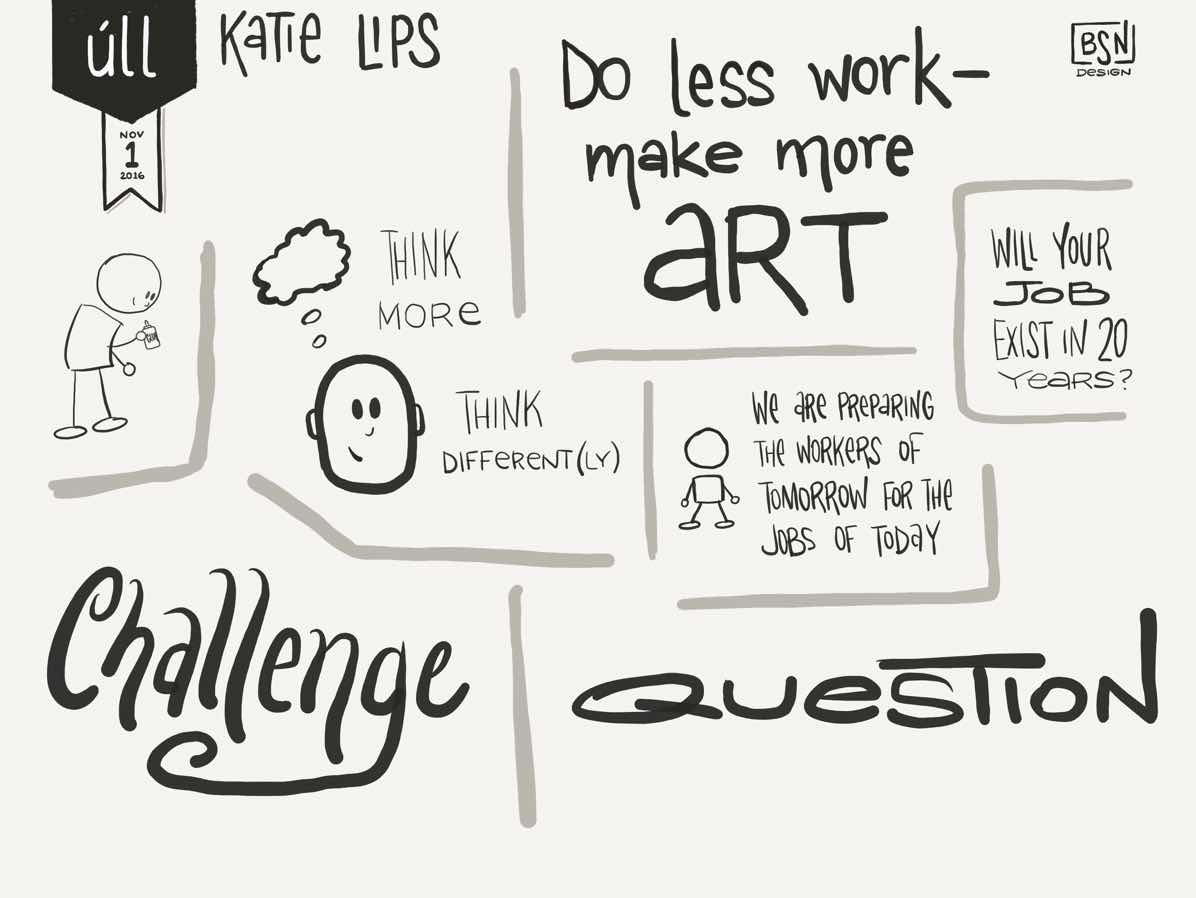 úll
KATIE LIPS
NOV
1
2016
Do less work–
make more
ART
BSN
DESIGN
THINK
MORE
THINK
DIFFERENT(LY)
WILL YOUR
JOB
EXIST IN 20
YEARS?
WE ARE PREPARING
THE WORKERS OF
TOMORROW FOR THE
JOBS OF TODAY
Challenge
QUESTION